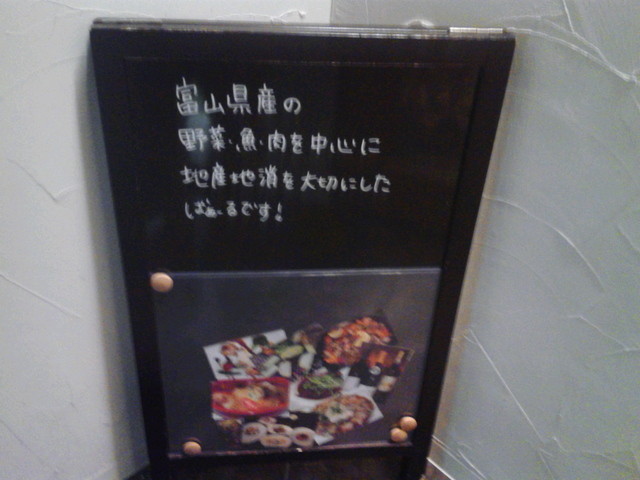 富山県産の
野菜・魚・肉を中心に
地産地消を大切にした
ばぁーるです!